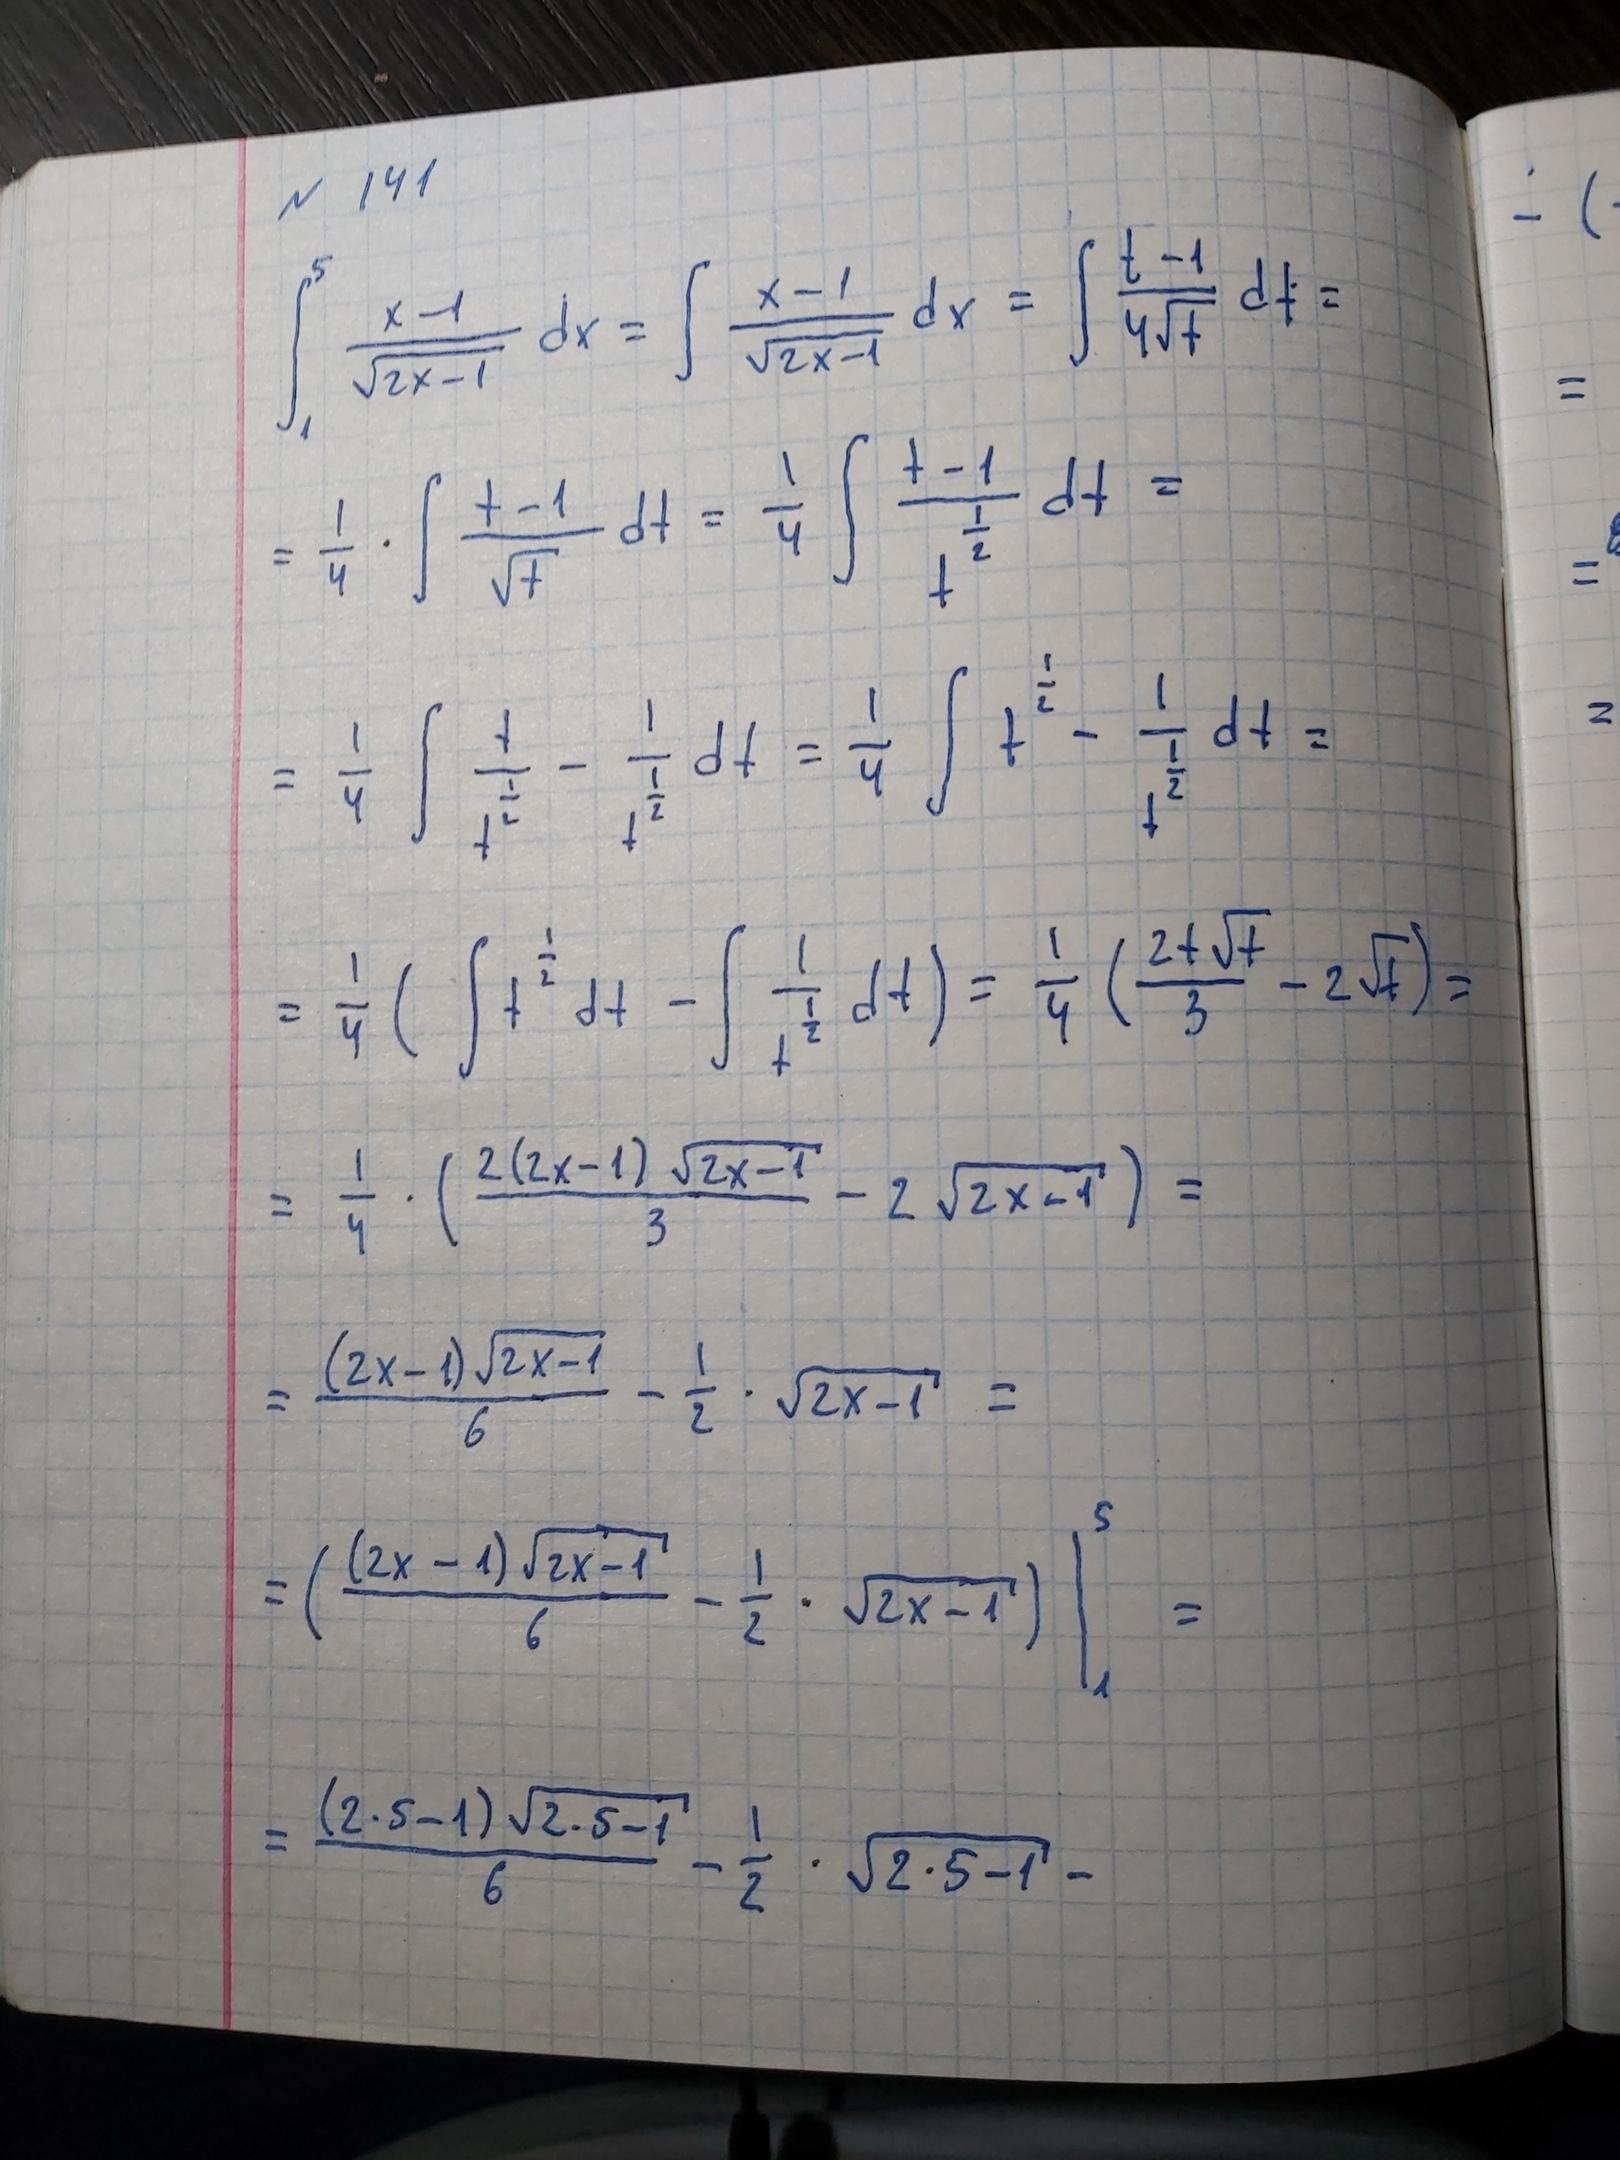 N 141
∫₁⁵ (x-1)/√(2x-1) dx = ∫ (x-1)/√(2x-1) dx = ∫ (t-1)/(4√t) dt =
= 1/4 · ∫ (t-1)/√t dt = 1/4 ∫ (t-1)/t^(1/2) dt =
= 1/4 ∫ t/t^(1/2) - 1/t^(1/2) dt = 1/4 ∫ t^(1/2) - 1/t^(1/2) dt =
= 1/4 ( ∫ t^(1/2) dt - ∫ 1/t^(1/2) dt ) = 1/4 ( 2t√t/3 - 2√t ) =
= 1/4 · ( 2(2x-1)√(2x-1)/3 - 2√(2x-1) ) =
= (2x-1)√(2x-1)/6 - 1/2 · √(2x-1) =
= ( (2x-1)√(2x-1)/6 - 1/2 · √(2x-1) ) |₁⁵ =
= (2·5-1)√(2·5-1)/6 - 1/2 · √(2·5-1) -
- (
=
=
=